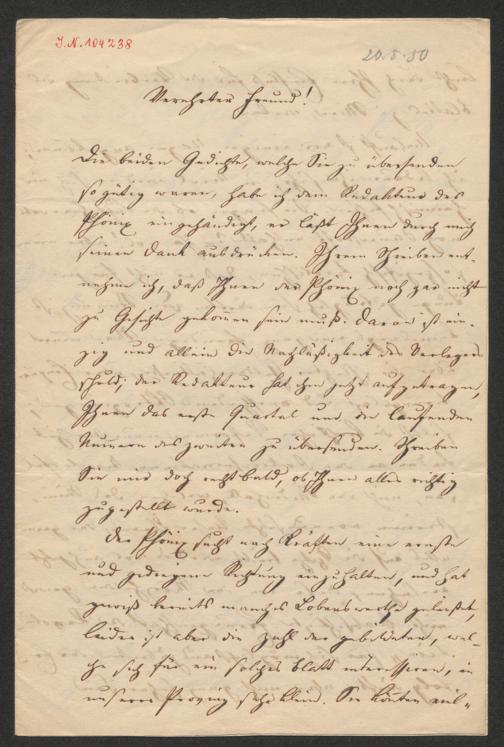 J.N. 104238
20.5.50
Verehrter Freund!
Die beiden Gedichte, welche Sie zu übersenden
so gütig waren, habe ich dem Redakteur des
Phönix eingehändigt, er läßt Ihnen durch mich
seinen Dank ausdrücken. Ihrem Schreiben ent-
nehme ich, daß Ihnen der Phönix noch gar nicht
zu Gesicht gekommen sein muß. Daran ist ein-
zig und allein die Nachläßigkeit des Verlegers
schuld; der Redakteur hat ihm jetzt aufgetragen,
Ihnen das erste Quartal und die laufenden
Nummern des zweiten zu übersenden. Schreiben
Sie mir doch recht bald, ob Ihnen alles richtig
zugestellt wurde.
Der Phönix sucht nach Kräften eine ernste
und gediegene Richtung einzuhalten, und hat
gewiß bereits manches Lobenswerthe geleistet,
leider ist aber die Zahl der Gebildeten, wel-
che sich für ein solches Blatt interessiren, in
unserer Provinz sehr klein. Sie könnten viel-